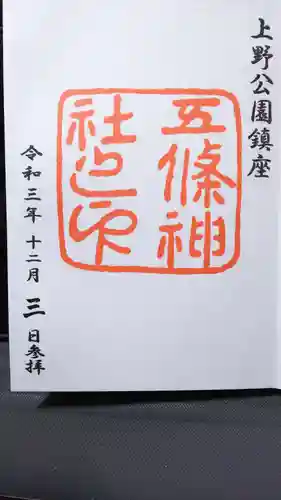 上野公園鎮座
五條神
社之印
令和三年 十二月 三 日参拝